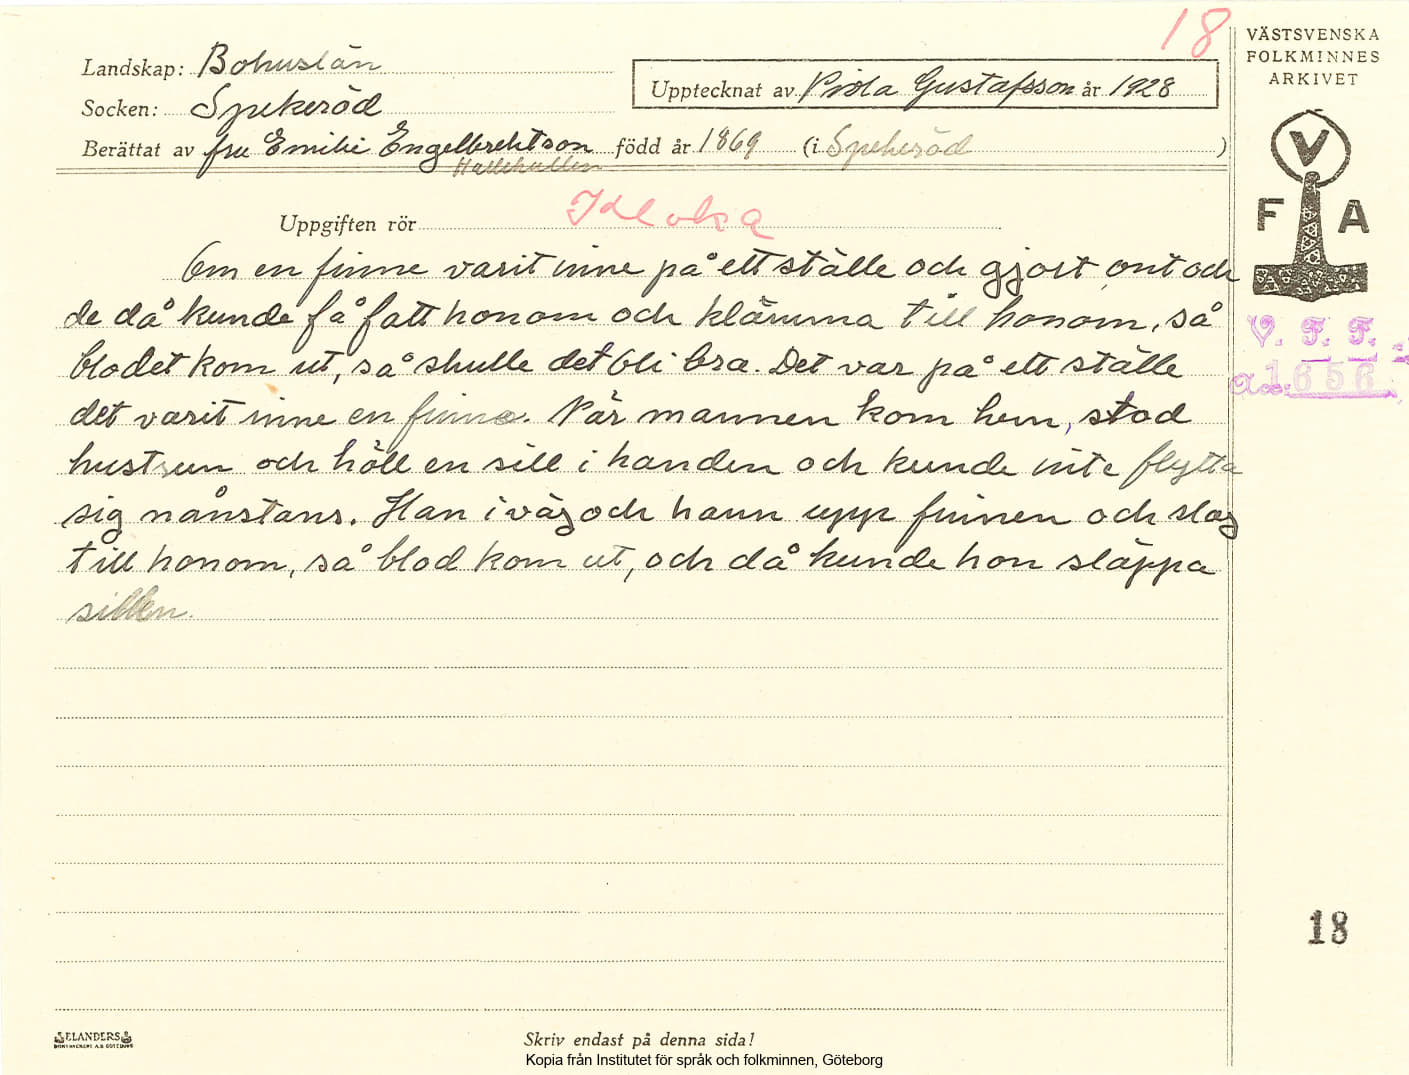 18
VÄSTSVENSKA
FOLKMINNES
ARKIVET
Landskap: Bohuslän
Upptecknat av Viola Gustafsson år 1928
Socken: Spekeröd
Berättat av fru Emilie Engelbrektson född år 1869 (i Spekeröd)
V
F A
Uppgiften rör
Om en finne varit inne på ett ställe och gjort ont och
de då kunde få fatt honom och klämma till honom, så
blodet kom ut, så skulle det bli bra. Det var på ett ställe
det varit inne en finne. När mannen kom hem, stod
hustrun och höll en sill i handen och kunde inte flytta
sig nånstans. Han iväg och hann upp finnen och slog
till honom, så blod kom ut, och då kunde hon släppa
sillen.
V. F. F.
1656
18
ELANDERS
Skriv endast på denna sida!
Kopia från Institutet för språk och folkminnen, Göteborg